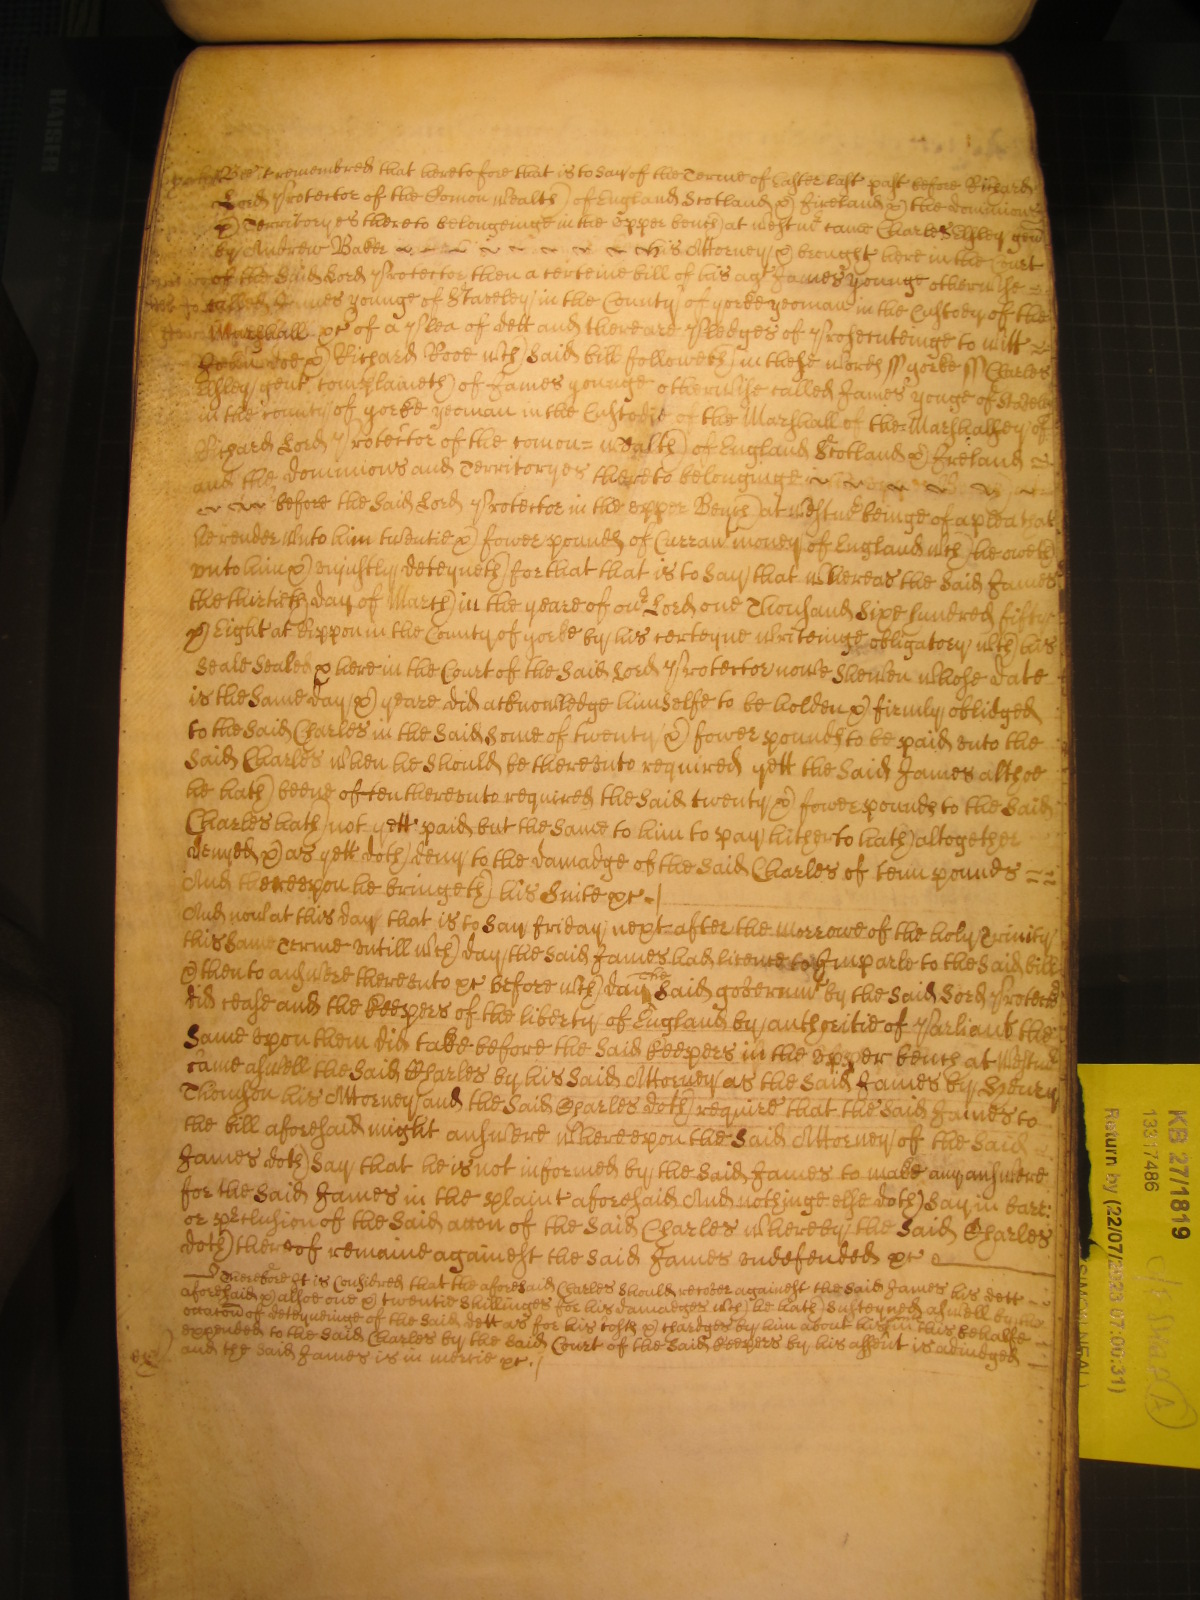 Bee it remembred that heretofore that is to say of the Terme of Easter last past before Richard
Lord Protector of the Comon Wealth of England Scotland & Ireland & the dominions
& Territoryes thereto belongeinge in the upper bench at Westmr came Charles Ashley gent
by Andrew Baker his Attorney & brought here in the Court
of the said Lord Protector then a certeine bill of his agt James younge otherwise
called James younge of Staveley in the County of yorke yeoman in the Custody of the
Marshall &c of a Plea of dett and there are Pledges of Prosecuteinge to witt
John Doe & Richard Rooe wch said bill followeth in these words ss yorke ss Charles
Ashley gent complaineth of James younge otherwise called James yonge of Staveley
in the county of yorke yeoman in the Custodie of the Marshall of the Marshalsey of
Richard Lord Protector of the comon=wealth of England Scotland & Ireland
and the dominions and Territoryes thereto belonginge
before the said Lord Protector in the upper Bench at Westmr beinge of a plea that
he render unto him twentie & fower pounds of Curran money of England wch he oweth
unto him & unjustly deteyneth for that that is to say that whereas the said James
the thirtieth day of March in the yeare of our Lord one Thousand Sixe hundred fiftye
& Eight at Rippon in the County of yorke by his certeyne writeinge obligatory wth his
seale sealed & here in the Court of the said Lord Protector nowe shewen whose date
is the same day & yeare did acknowledge himselfe to be holden & firmly oblidged
to the said Charles in the said some of twenty & fower pounds to be paid unto the
said Charles when he should be thereunto required yett the said James althoe
he hath beene often thereunto required the said twenty & fower pounds to the said
Charles hath not yett paid but the same to him to pay hitherto hath altogether
denyed & as yett doth deny to the damadge of the said Charles of tenn pounds
And thereupon he bringeth his suite &c
And now at this day that is to say friday next after the Morrowe of the holy Trinity
this same Terme untill wch day the said James had licence to Imparle to the said bill
& then to answere thereunto &c before wch day the said governmt by the said Lord Protector
did cease and the Keepers of the liberty of England by authoritie of Parliamt the
same upon them did take before the said keepers in the upper bench at Westmr
came aswell the said Charles by his said Attorney as the said James by Henry
Thomson his Attorney and the said Charles doth require that the said James to
the bill aforesaid might answere whereupon the said Attorney of the said
James doth say that he is not informed by the said James to make any answere
for the said James in the plaint aforesaid And nothinge else doth say in barr:
or preclusion of the said accon of the said Charles whereby the said Charles
doth thereof remaine againest the said James undefended &c
Therefore It is Considred that the aforesaid Charles should recover againest the said James his dett
aforesaid & alsoe one & twentie shillinges for his damadges wch he hath susteyned aswell by the
occacon of deteyneinge of the said dett as for his costs & chardges by him about his suite in this behalfe
expended to the said Charles by the said Court of the said keepers by his assent is adiudged
and the said James is in mercie &c
KB 27/1819
13317486
Return by (22/07/2023 07:06:31)